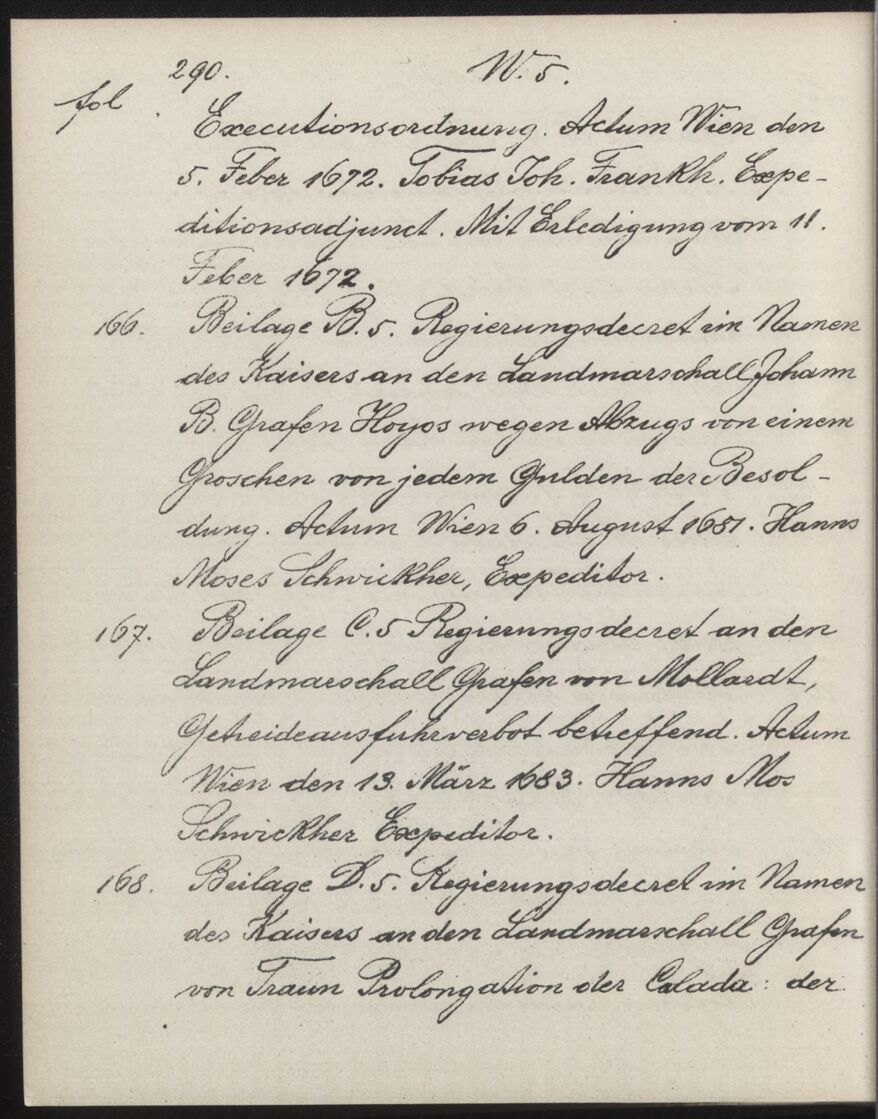 290. W. 5.
fol
Executionsordnung. Actum Wien den
5. Feber 1672. Tobias Joh. Frankh. Expe-
ditionsadjunct. Mit Erledigung vom 11.
Feber 1672.
166. Beilage B. 5. Regierungsdecret im Namen
des Kaisers an den Landmarschall Johann
B. Grafen Hoyos wegen Abzugs von einem
Groschen von jedem Gulden der Besol-
dung. Actum Wien 6. August 1681. Hanns
Moses Schwickher, Expeditor.
167. Beilage C. 5 Regierungsdecret an den
Landmarschall Grafen von Mollardt,
Getreideausfuhrverbot betreffend. Actum
Wien den 13. März 1683. Hanns Mos
Schwickher Expeditor.
168. Beilage D. 5. Regierungsdecret im Namen
des Kaisers an den Landmarschall Grafen
von Traun Prolongation der Calada: der